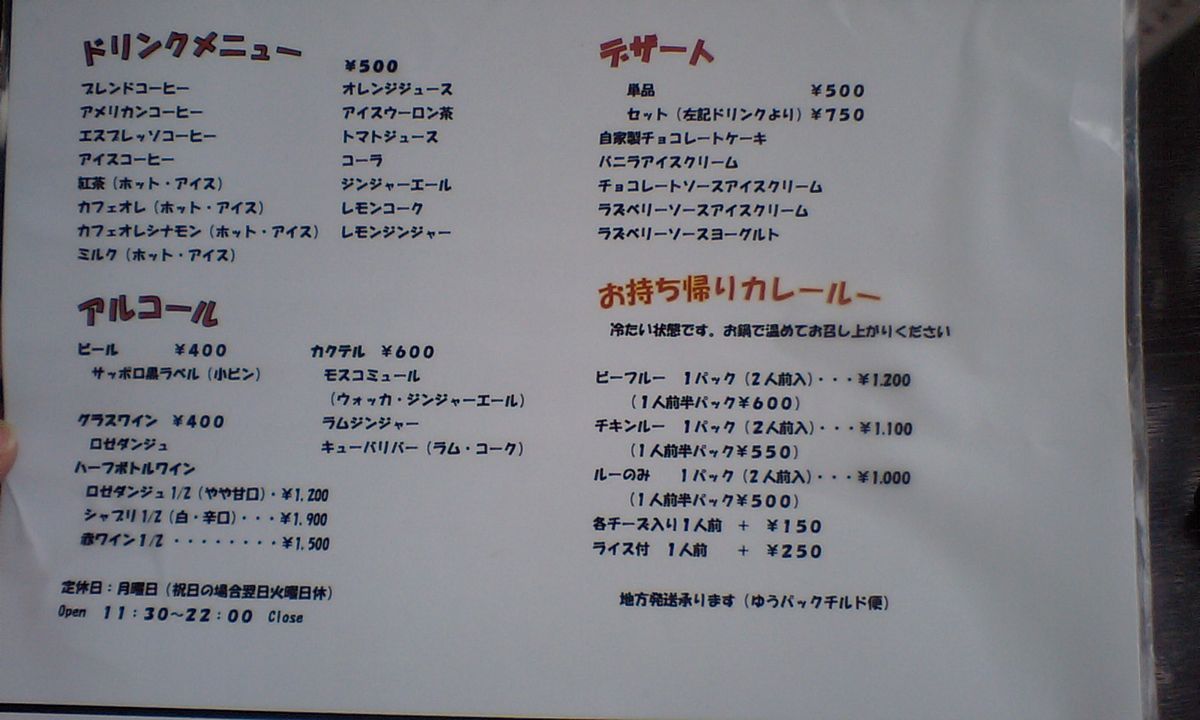 ドリンクメニュー
￥500
ブレンドコーヒー
アメリカンコーヒー
エスプレッソコーヒー
アイスコーヒー
紅茶（ホット・アイス）
カフェオレ（ホット・アイス）
カフェオレシナモン（ホット・アイス）
ミルク（ホット・アイス）
オレンジジュース
アイスウーロン茶
トマトジュース
コーラ
ジンジャーエール
レモンコーク
レモンジンジャー
アルコール
ビール ￥400
サッポロ黒ラベル（小ビン）
グラスワイン ￥400
ロゼダンジュ
ハーフボトルワイン
ロゼダンジュ1/2（やや甘口）・￥1,200
シャブリ1/2（白・辛口）・・・￥1,900
赤ワイン1/2 ・・・・・・・・￥1,500
カクテル ￥600
モスコミュール
（ウォッカ・ジンジャーエール）
ラムジンジャー
キューバリバー（ラム・コーク）
定休日：月曜日（祝日の場合翌日火曜日休）
Open 11：30～22：00 Close
デザート
単品 ￥500
セット（左記ドリンクより）￥750
自家製チョコレートケーキ
バニラアイスクリーム
チョコレートソースアイスクリーム
ラズベリーソースアイスクリーム
ラズベリーソースヨーグルト
お持ち帰りカレールー
冷たい状態です。お鍋で温めてお召し上がりください
ビーフルー 1パック（2人前入）・・・￥1,200
（1人前半パック￥600）
チキンルー 1パック（2人前入）・・・￥1,100
（1人前半パック￥550）
ルーのみ 1パック（2人前入）・・・￥1,000
（1人前半パック￥500）
各チーズ入り1人前 ＋ ￥150
ライス付 1人前 ＋ ￥250
地方発送承ります（ゆうパックチルド便）